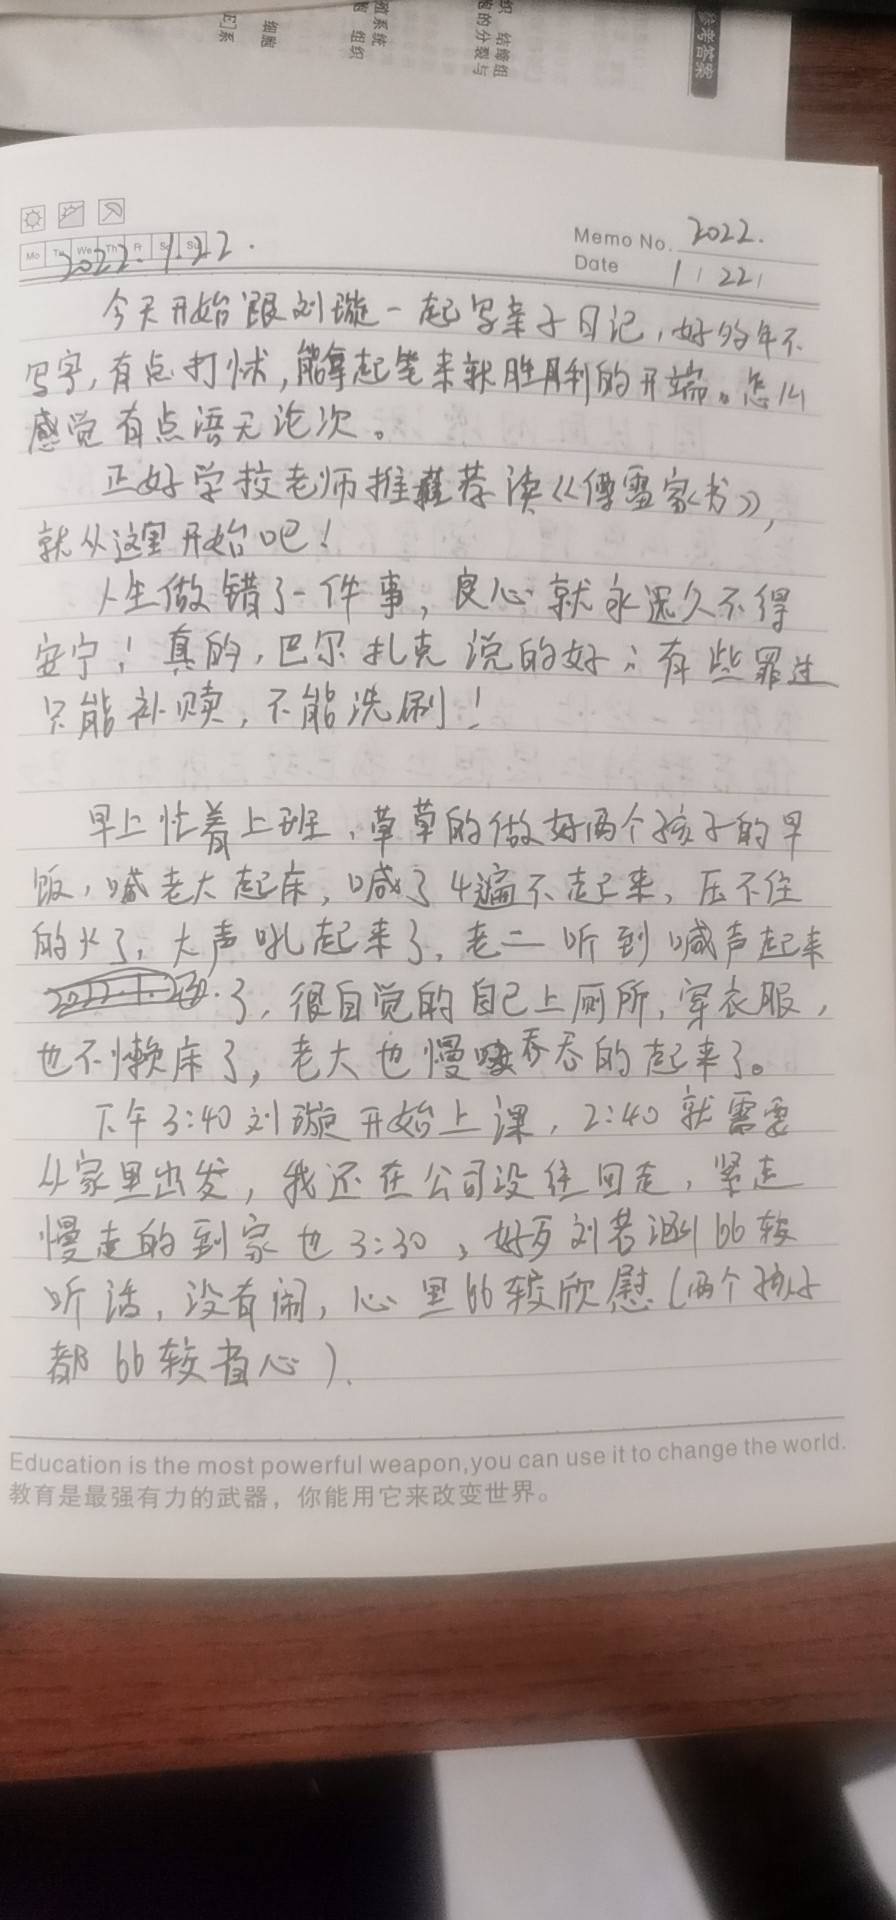 参考答案
织 结缔组
胞的分裂与
殖系统
胞 组织
细胞
们]系
Mo Tu We Th Fr Sa Su
2022.1.22.
Memo No. 2022.
Date 1 | 22 |
今天开始跟刘璇一起写亲子日记，好多年不
写字，有点打怵，能拿起笔来就胜利的开端。怎么
感觉有点语无论次。
正好学校老师推荐读《傅雷家书》，
就从这里开始吧！
人生做错了一件事，良心就永远久不得
安宁！真的，巴尔扎克说的好：有些罪过
只能补赎，不能洗刷！
早上忙着上班，草草的做好两个孩子的早
饭，喊老大起床，喊了4遍不起来，压不住
的火了，大声吼起来了，老二听到喊声起来
了，很自觉的自己上厕所，穿衣服，
也不懒床了，老大也慢吞吞的起来了。
下午3:40刘璇开始上课，2:40就需要
从家里出发，我还在公司没往回走，紧走
慢走的到家也3:30，好歹刘若涵比较
听话，没有闹，心里比较欣慰（两个孩子
都比较省心）.
Education is the most powerful weapon,you can use it to change the world.
教育是最强有力的武器，你能用它来改变世界。